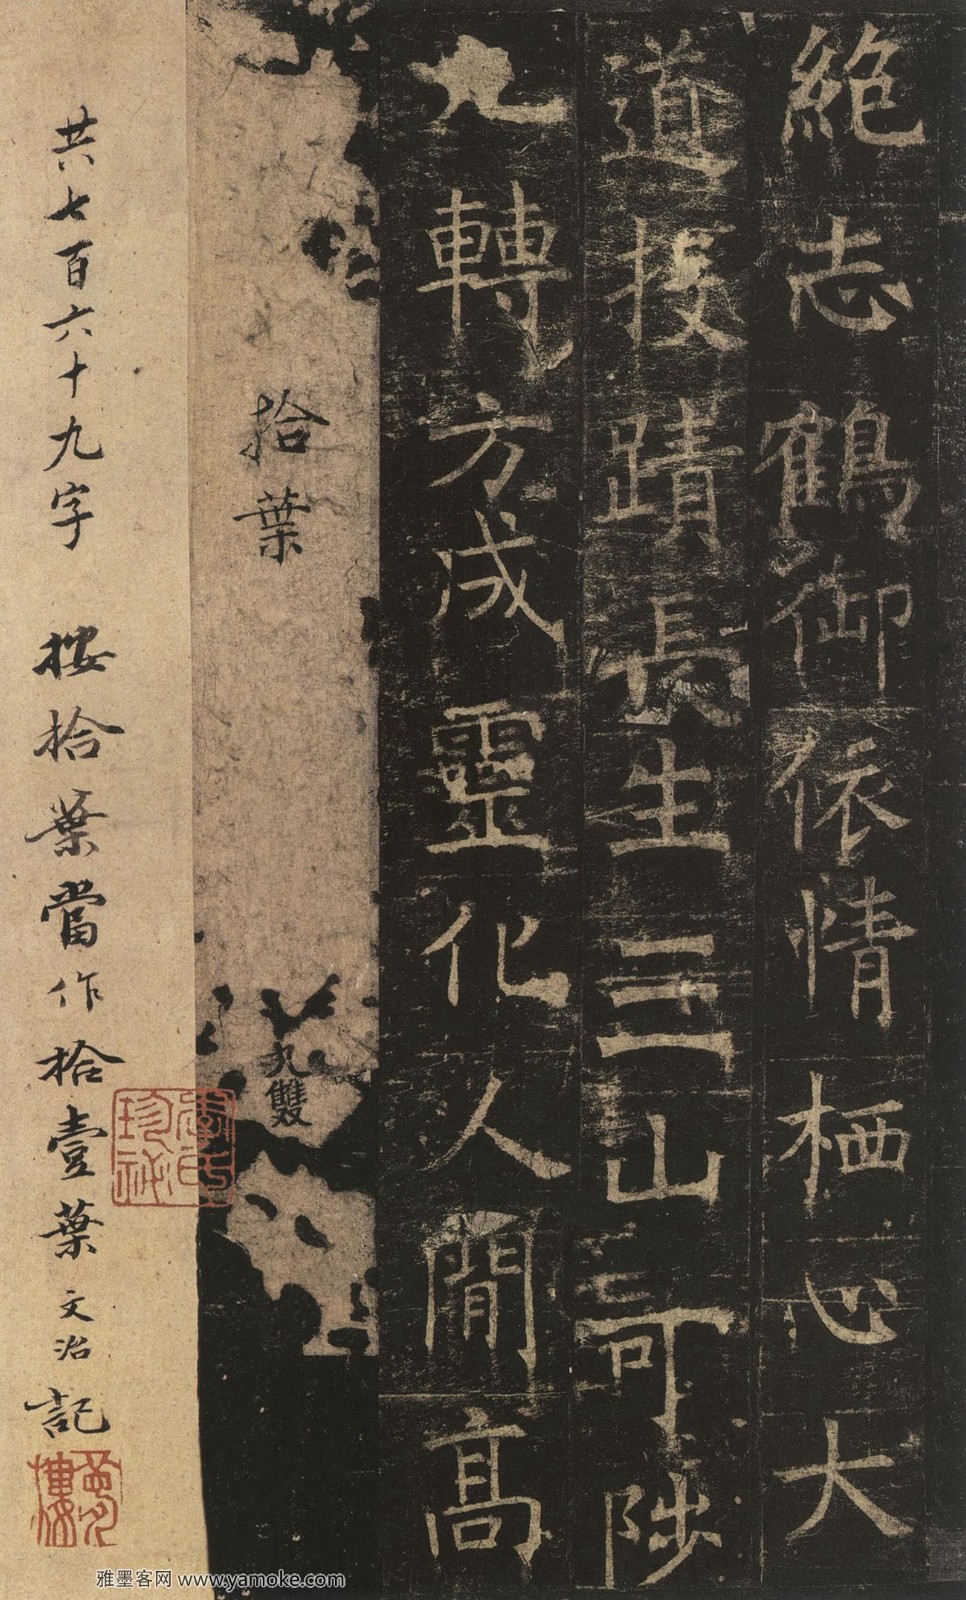 絶志鶴御依情栖心大
道投蹟長生三山可陟
九轉方成靈化人間髙
拾葉
九雙
共七百六十九字 按拾葉當作拾壹葉文治記
李氏珍祕
夢樓
雅墨客网 www.yamoke.com